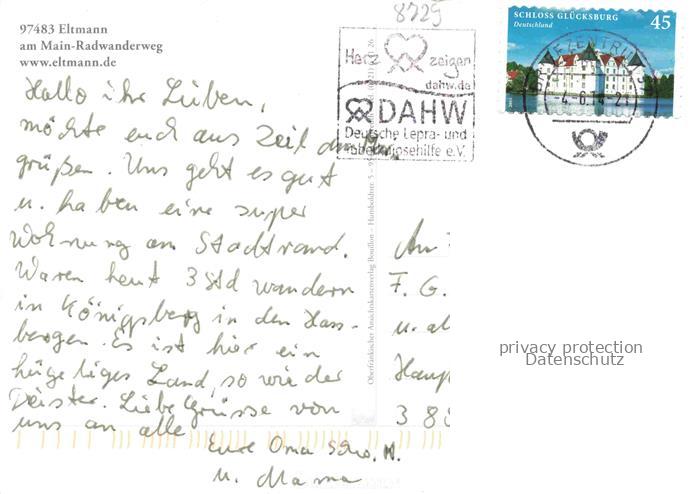 97483 Eltmann
am Main-Radwanderweg
www.eltmann.de
Hallo ihr Lieben,
möchte euch aus Zeil am
grüßen. Uns geht es gut
u. haben eine super
Wohnung am Stadtrand.
Waren heut 3 Std wandern
in Königsberg in den Hass-
bergen. Es ist hier ein
hügeliges Land, so wie der
Deister. Liebe Grüsse von
uns an alle
Eure Oma
u. Mama
8729
Herz zeigen
dahw.de
DAHW
Deutsche Lepra- und
Tuberkulosehilfe e.V.
SCHLOSS GLÜCKSBURG
Deutschland
45
Oberfränkischer Ansichtskartenverlag Bouillon
An
F. G.
u. al
Haup
3 8
privacy protection
Datenschutz